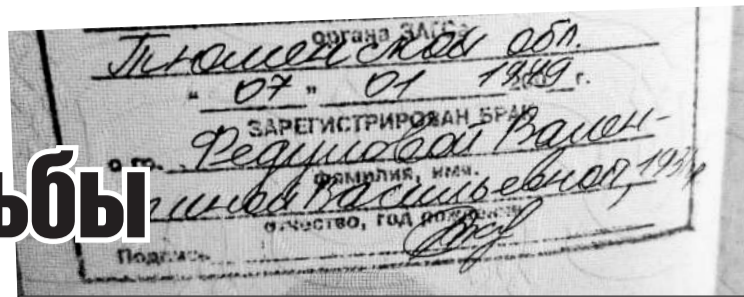 органа ЗАГСа
Тюменской обл.
"07" 01 г.
ЗАРЕГИСТРИРОВАН БРАК
с гр. Федуловой Вален-
фамилия, имя,
тиной Васильевной,
отчество, год рождения
Подпись
ьбы